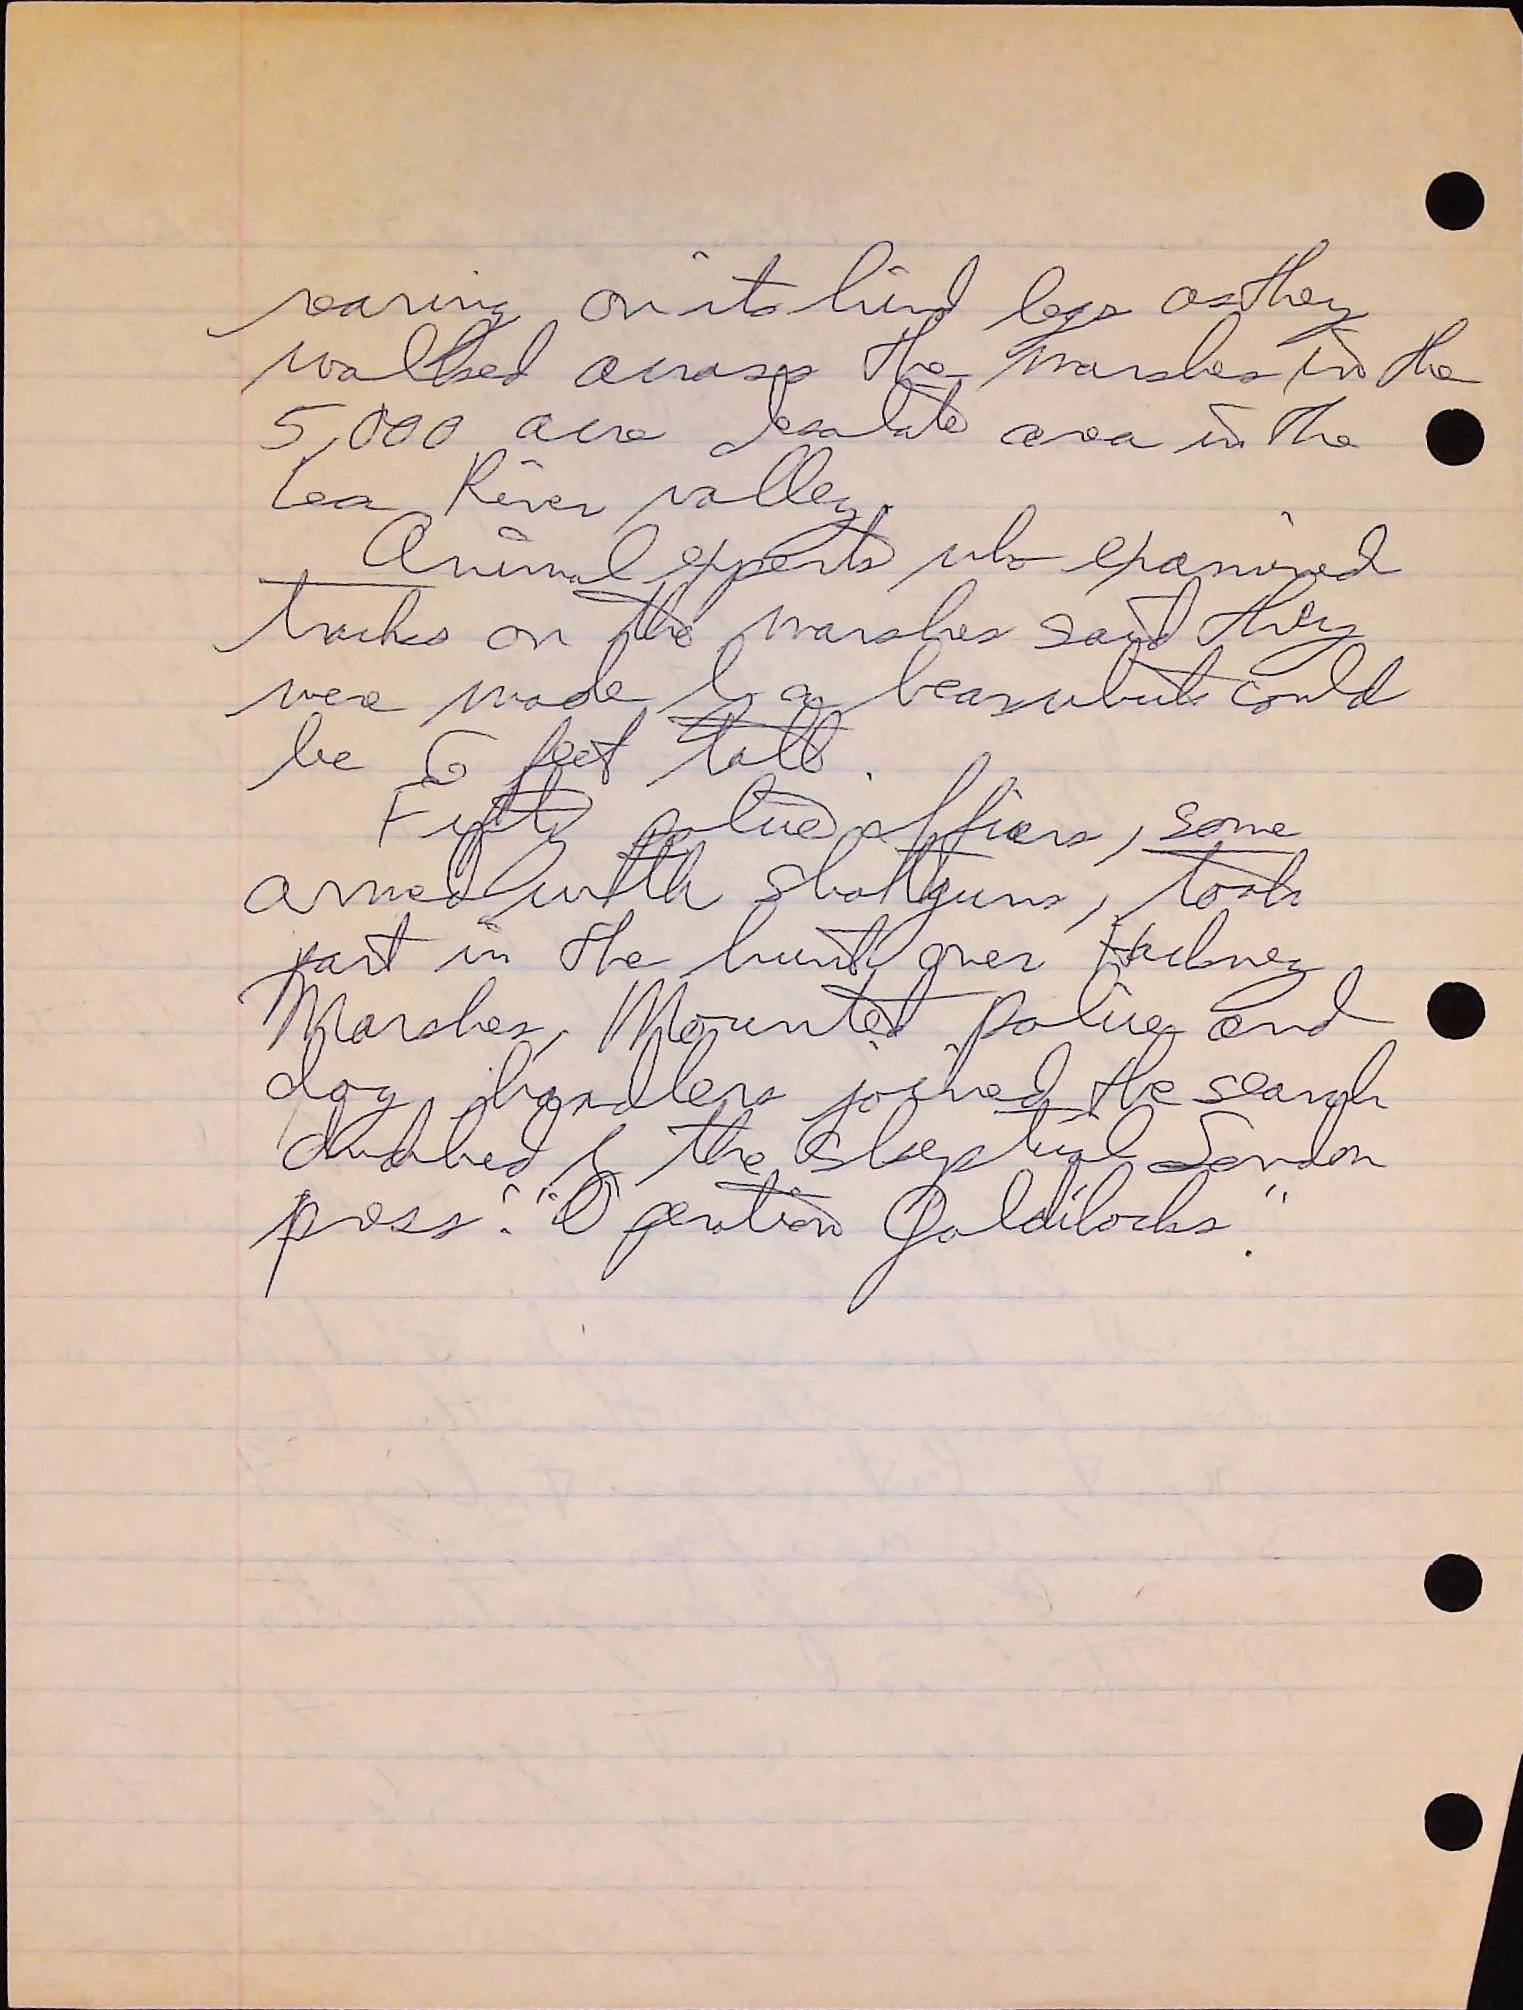 rearing on its hind legs as they
walked across the marshes in the
5,000 acre desolate area in the
Lea River valley.
Animal experts who examined
tracks on the marshes said they
were made by a bear which could
be 6 feet tall.
Fifty police officers, some
armed with shotguns, took
part in the hunt over Hackney
Marshes, Mounted police and
dog handlers joined the search
dubbed by the skeptical London
press: "Operation Goldilocks."